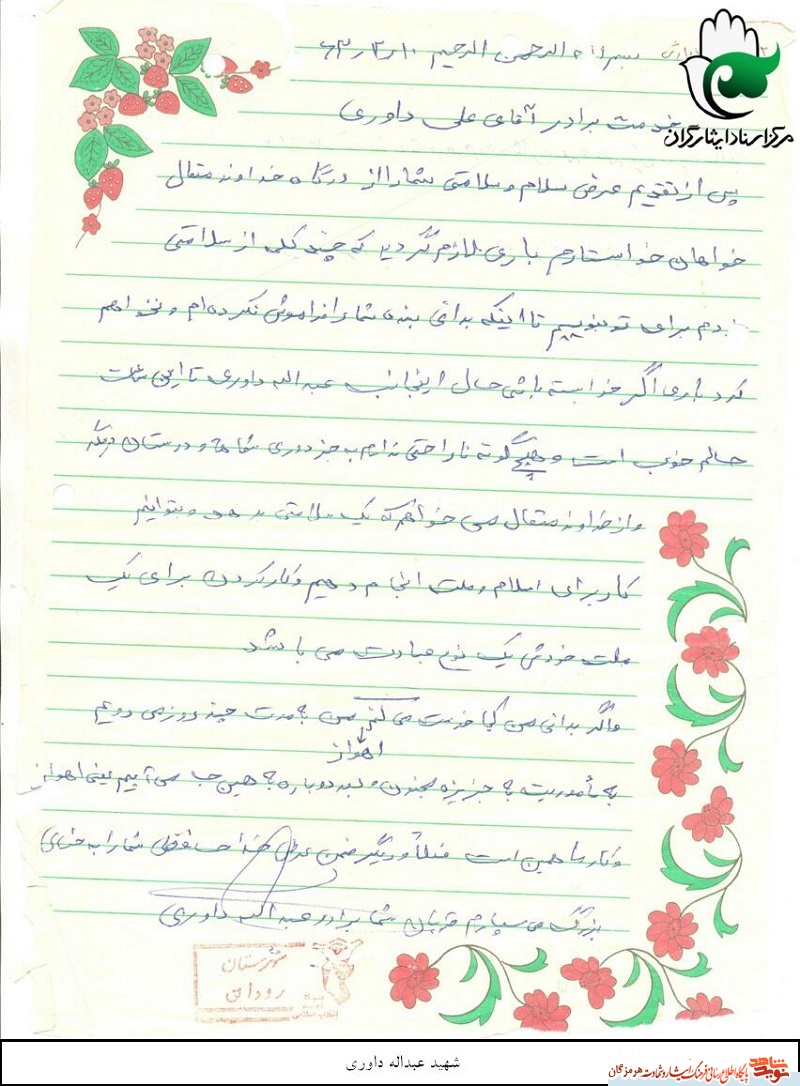 بسم اله الرحمن الرحیم
مرکز اسناد ایثارگران
خدمت برادر آقای علی داوری
پس از تقدیم عرض سلام و سلامتی شما را از درگاه خداوند متعال
خواهان خواستارم باری لازم گردید که چند کلمه از سلامتی
خودم برای تو بنویسم تا اینکه بدانی بنده شما را فراموش نکرده‌ام و نخواهم
کرد باری اگر خواسته باشی حال اینجانب عبداله داوری تا این ساعت
حالم خوب است و هیچ گونه ناراحتی ندارم به جز دوری شماها و دوستان دیگر
و از خداوند متعال می خواهم که یک سلامتی بدهد و بتوانیم
کار برای اسلام و ملت انجام دهیم و کار کردن برای یک
ملت خودش یک نوع عبادت می باشد
و اگر بدانی من کجا خدمت می کنم من به مدت چند روز می رویم
اهواز
به مأموریت به جزیره مجنون و بعد دوباره به همین جا می آییم یعنی اهواز
و کار ما همین است فعلاً دیگر ضمن عرض خداحافظی شما را به خدای
بزرگ می سپارم قربان شما برادر عبداله داوری
شهرستان
رودان
بنیاد شهید
انقلاب اسلامی
شهید عبداله داوری
نوید شاهد
پایگاه اطلاع رسانی فرهنگ ایثار و شهادت هرمزگان